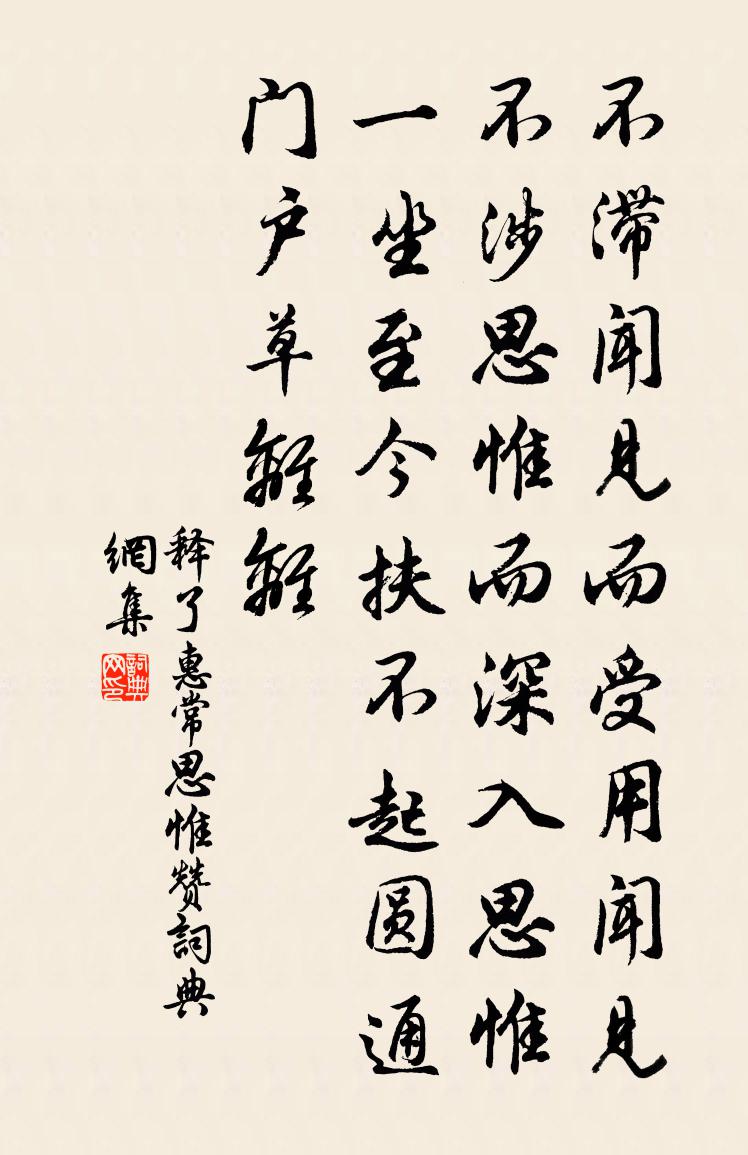 不滞闻见而受用闻见
不涉思惟而深入思惟
一坐至今扶不起圆通
门户草離離
释了惠常思惟赞詞典
網集
詞典
网印